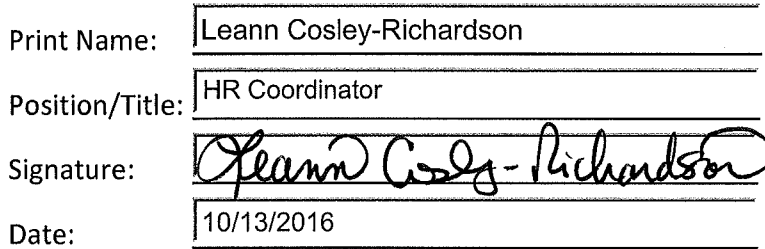 Print Name: Leann Cosley-Richardson
Position/Title: HR Coordinator
Signature: Leann Cosly-Richardson
Date: 10/13/2016